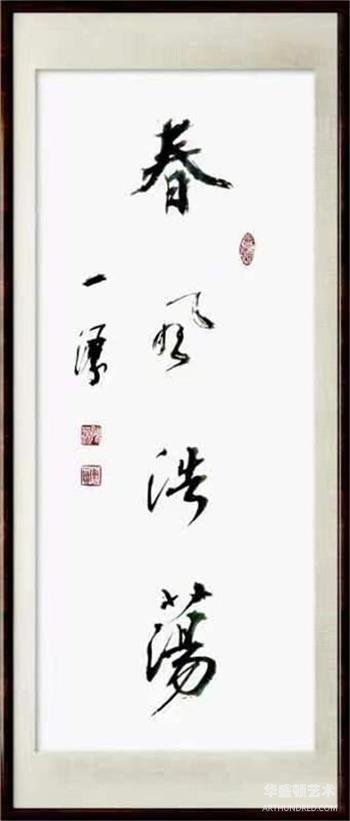 春风浩蕩
一漂
华盛顿艺术
ARTHUNDRED.COM